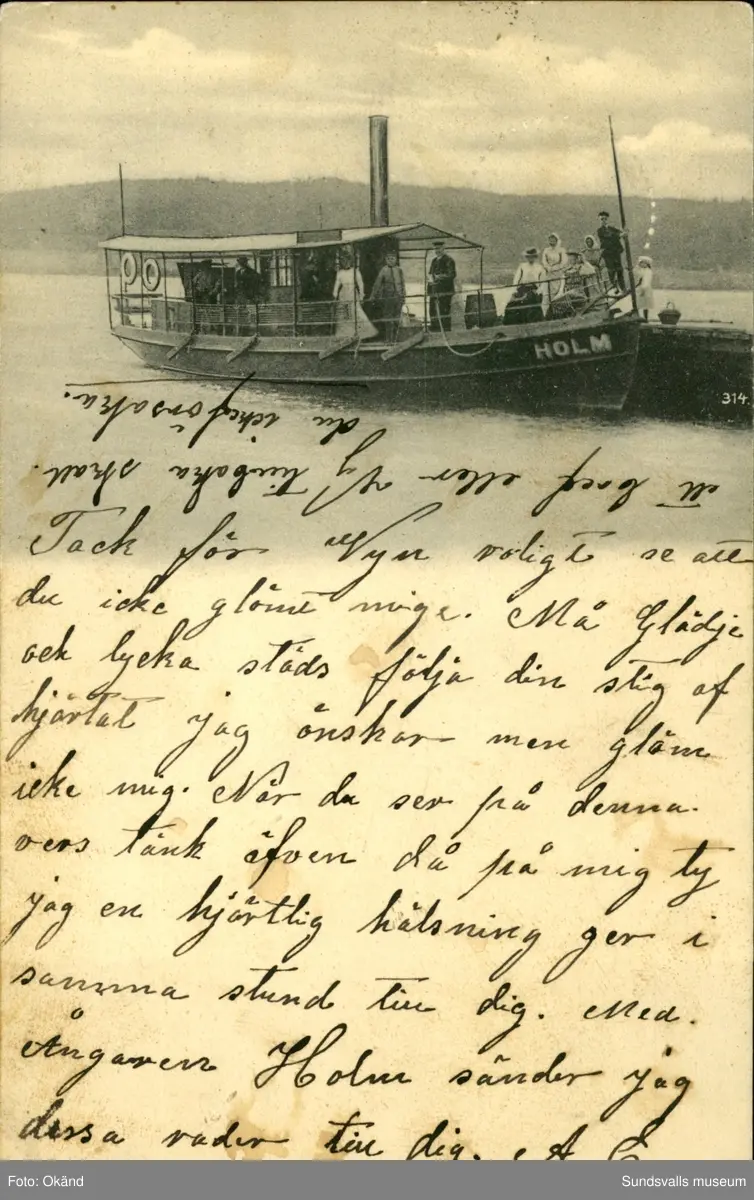 HOLM
314.
Tack för Vyn roligt se att
du icke glömt mige. Må Glädje
ock lycka städs följa din stig af
hjärtat jag önskar men glöm
icke mig. När du ser på denna.
vers tänk äfven då på mig ty
jag en hjärtlig hälsning ger i
samma stund till dig. Med.
Ångaren Holm sänder jag
dessa rader till dig. A E
ett bref eller Vy tillbaka skall.
du icke försaka.
Foto: Okänd
Sundsvalls museum